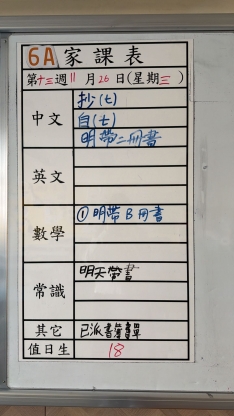 6A 家課表
第十三週 11月26日(星期三)
中文
抄(七)
自(七)
明帶二冊書
英文
數學
①明帶B冊書
常識
明天帶書
其它
已派書簿單
值日生
18